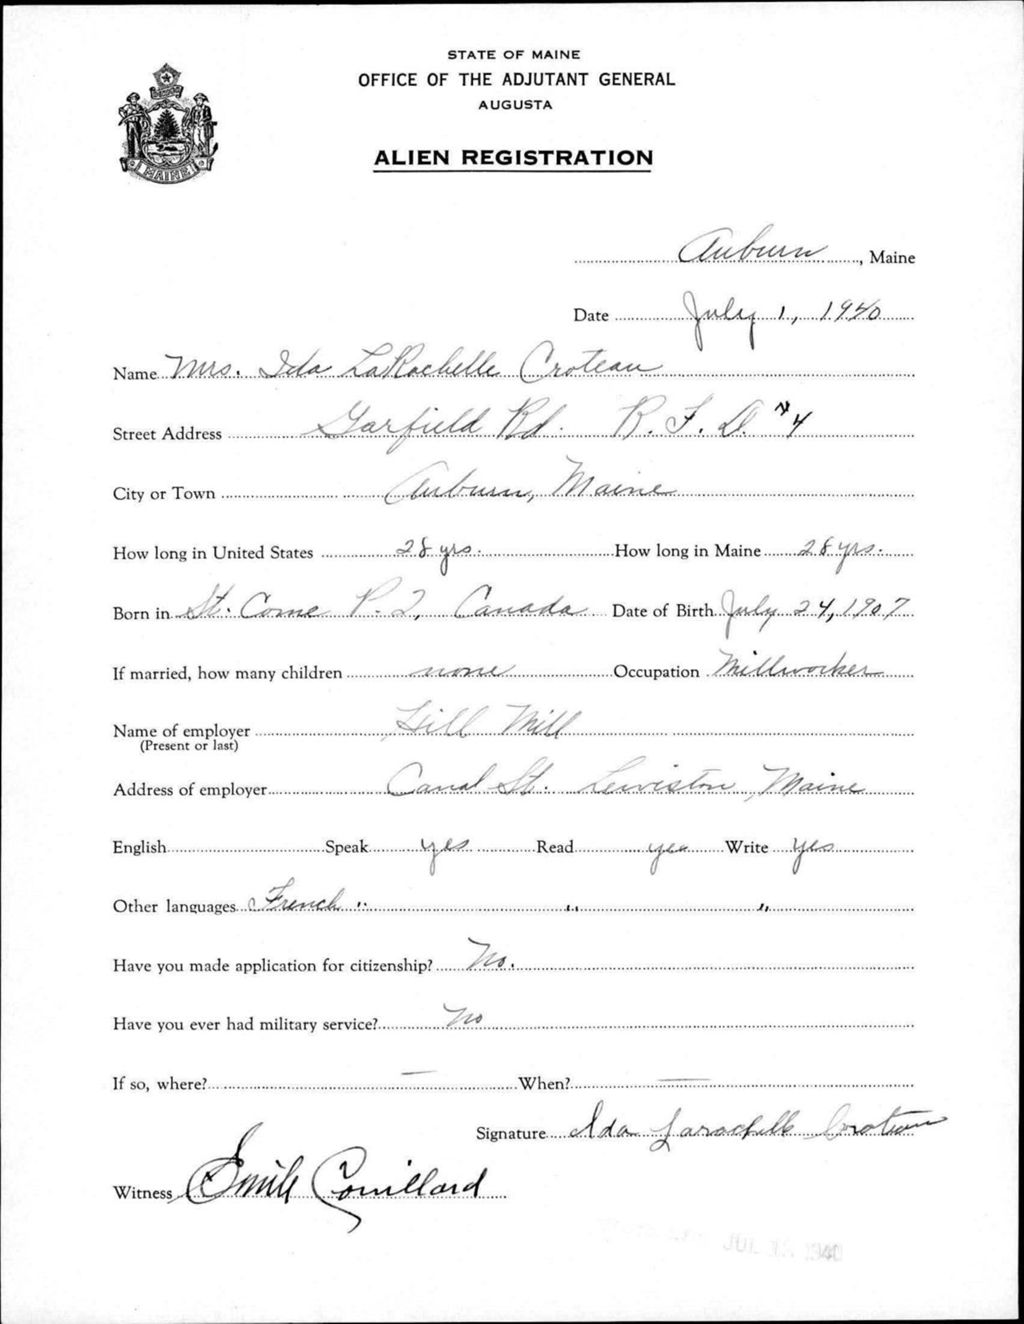 STATE OF MAINE
OFFICE OF THE ADJUTANT GENERAL
AUGUSTA
ALIEN REGISTRATION
MAINE
Auburn, Maine
Date July 1, 1940
Name Mrs. Ida LaRochelle Croteau
Street Address Garfield Rd. R. F. D. #4
City or Town Auburn, Maine
How long in United States 28 yrs. How long in Maine 28 yrs.
Born in St. Come P. Q, Canada Date of Birth July 24, 1907
If married, how many children none Occupation Millworker
Name of employer Hill Mill
(Present or last)
Address of employer Canal St. Lewiston, Maine
English Speak yes Read yes Write yes
Other languages French " " "
Have you made application for citizenship? No.
Have you ever had military service? No
If so, where? — When? —
Signature Ida Larochelle Croteau
Witness Emile Couillard
JUL 1940